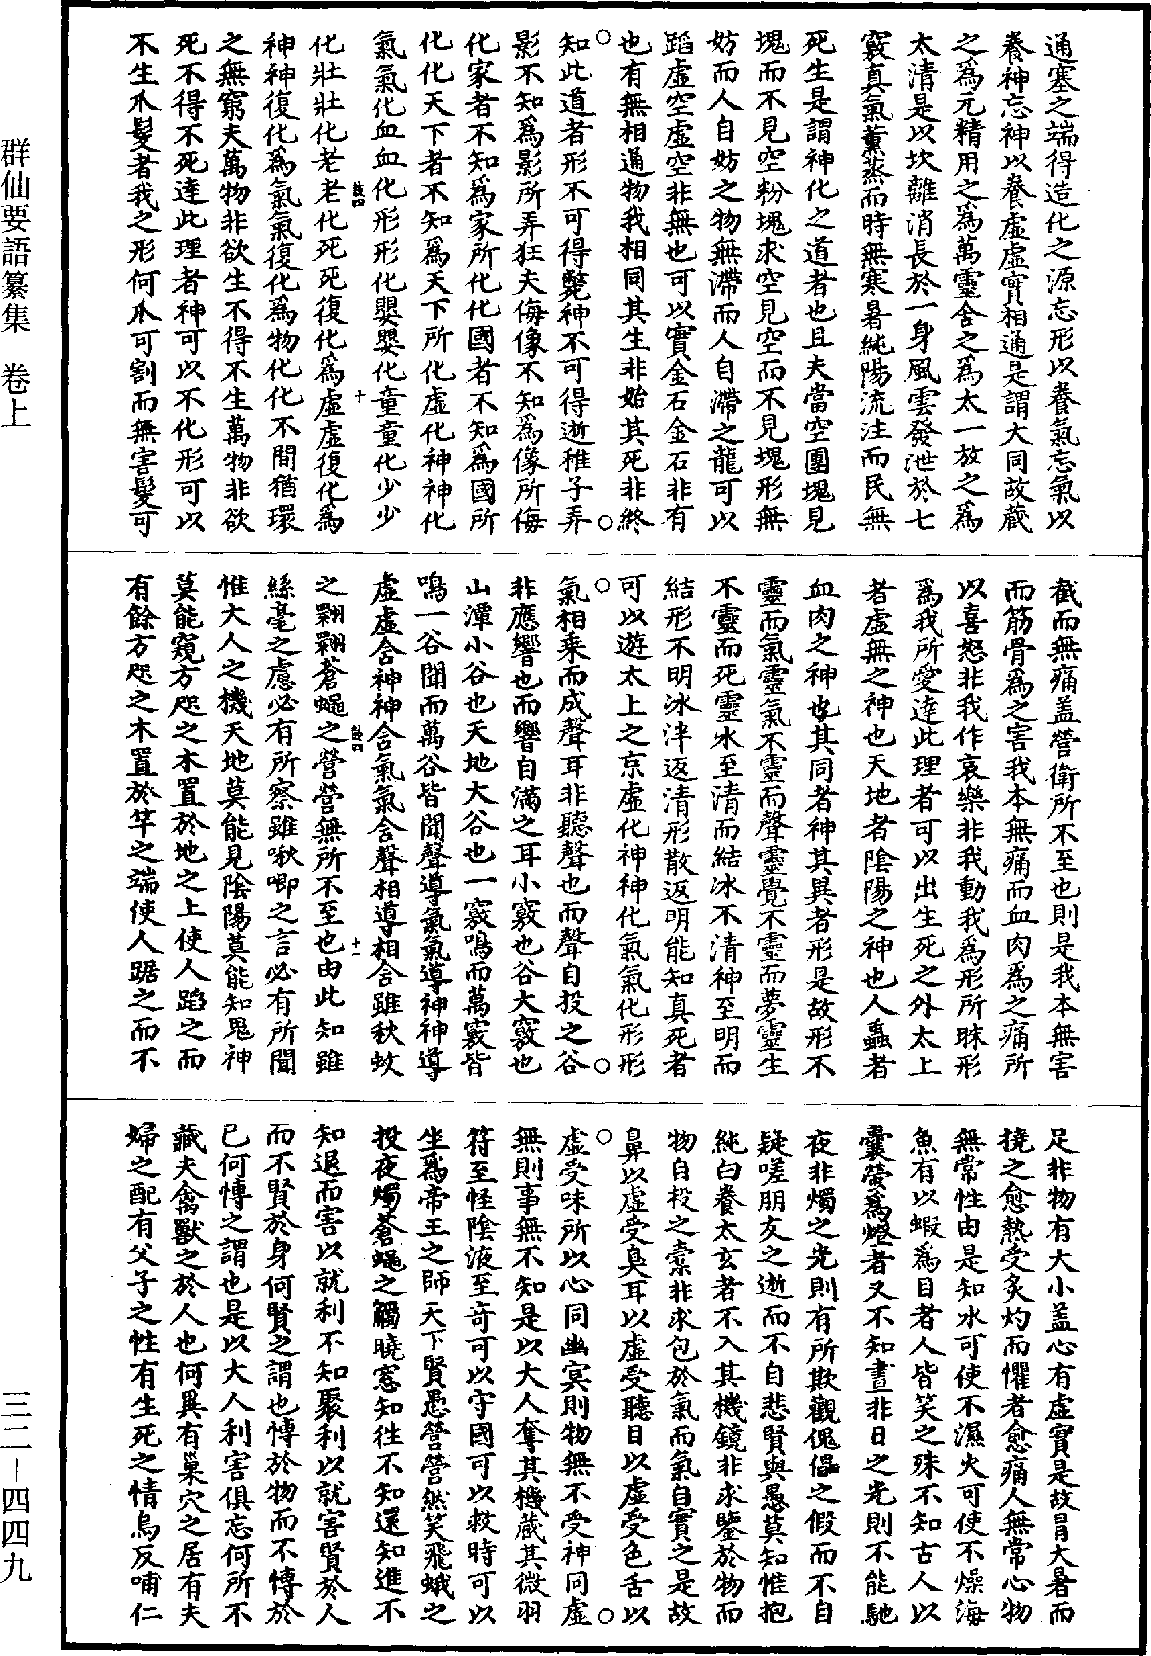 通塞之端得造化之源忘形以養氣忘氣以
養神忘神以養虛虛實相通是謂大同故藏
之爲元精用之爲萬靈含之爲太一放之爲
太清是以坎離消長於一身風雲發泄於七
竅真氣薰蒸而時無寒暑純陽流注而民無
死生是謂神化之道者也且夫當空團塊見
塊而不見空粉塊求空見空而不見塊形無
妨而人自妨之物無滯而人自滯之龍可以
蹈虛空虛空非無也可以實金石金石非有
也有無相通物我相同其生非始其死非終
知此道者形不可得斃神不可得逝稚子弄
影不知爲影所弄狂夫侮像不知爲像所侮
化家者不知爲家所化化國者不知爲國所
化化天下者不知爲天下所化虛化神神化
氣氣化血血化形形化嬰嬰化童童化少少
化壯壯化老老化死死復化爲虛虛復化爲
神神復化爲氣氣復化爲物化化不間猶環
之無窮夫萬物非欲生不得不生萬物非欲
死不得不死達此理者神可以不化形可以
不生爪髮者我之形何爪可割而無害髮可
截而無痛蓋營衛所不至也則是我本無害
而筋骨爲之害我本無痛而血肉爲之痛所
以喜怒非我作哀樂非我動我爲形所昧形
爲我所愛達此理者可以出生死之外太上
者虛無之神也天地者陰陽之神也人蟲者
血肉之神也其同者神其異者形是故形不
靈而氣靈氣不靈而聲靈覺不靈而夢靈生
不靈而死靈水至清而結冰不清神至明而
結形不明冰泮返清形散返明能知真死者
可以遊太上之京虛化神神化氣氣化形形
氣相乘而成聲耳非聽聲也而聲自投之谷
非應響也而響自滿之耳小竅也谷大竅也
山澤小谷也天地大谷也一竅鳴而萬竅皆
鳴一谷聞而萬谷皆聞聲導氣氣導神神導
虛虛含神神含氣氣含聲相導相含雖秋蚊
之翾翾蒼蠅之營營無所不至也由此知雖
絲毫之慮必有所察雖啾唧之言必有所聞
惟大人之機天地莫能見陰陽莫能知鬼神
莫能窺方咫之木置於地之上使人蹈之而
有餘方咫之木置於竿之端使人踞之而不
足非物有大小蓋心有虛實是故冒大暑而
撓之愈熱受炙灼而懼者愈痛人無常心物
無常性由是知水可使不濕火可使不燥海
魚有以蝦爲目者人皆笑之殊不知古人以
囊螢爲燈者又不知晝非日之光則不能馳
夜非燭之光則有所欺觀傀儡之假而不自
疑嗟朋友之逝而不自悲賢與愚莫知惟抱
純白養太玄者不入其機鏡非求鑒於物而
物自投之橐非求包於氣而氣自實之是故
鼻以虛受臭耳以虛受聽目以虛受色舌以
虛受味所以心同幽冥則物無不受神同虛
無則事無不知是以大人奪其機藏其微羽
符至怪陰液至奇可以守國可以救時可以
坐爲帝王之師天下賢愚營營然笑飛蛾之
投夜燭蒼蠅之觸曉窓知往不知還知進不
知退而害以就利不知聚利以就害賢於人
而不賢於身何賢之謂也博於物而不博於
己何博之謂也是以大人利害俱忘何所不
藏夫禽獸之於人也何異有巢穴之居有夫
婦之配有父子之性有生死之情烏反哺仁
群仙要語纂集 卷上
三二—四四九